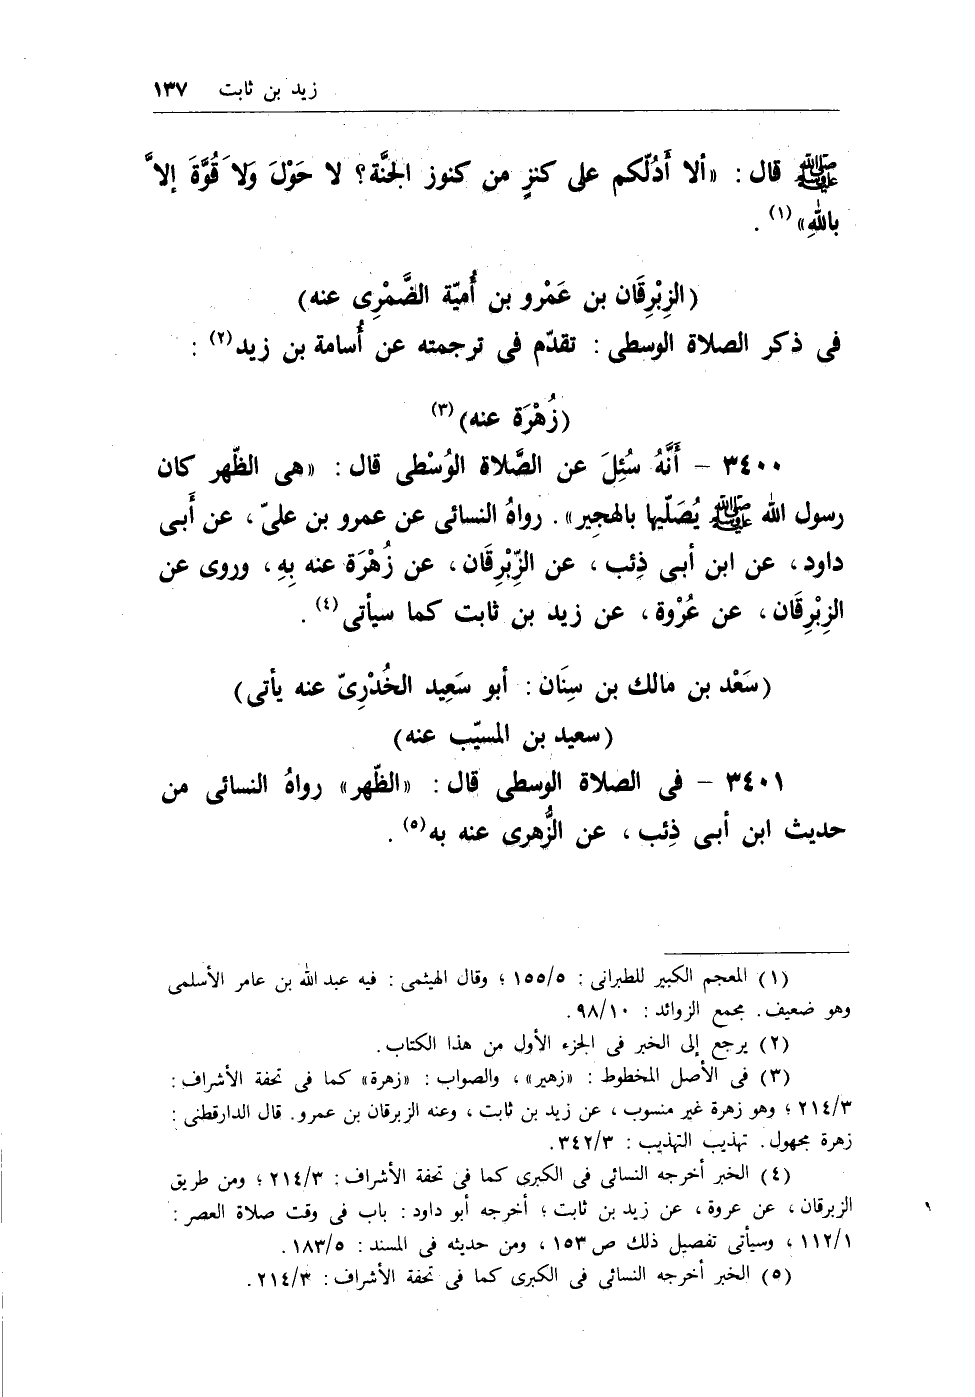 زيد بن ثابت ١٣٧
ﷺ قال : «ألا أَدُلّكم على كنزٍ من كنوز الجنَّة؟ لا حَوْلَ وَلاَ قُوَّةَ إلاَّ
باللهِ»(١) .
(الزِبْرِقَان بن عَمْرو بن أُميّة الضَّمْرِى عنه)
فى ذكر الصلاة الوسطى : تقدّم فى ترجمته عن أُسامة بن زيد(٢) :
(زُهْرَة عنه)(٣)
٣٤٠٠ – أَنَّهُ سُئِلَ عن الصَّلاة الوُسْطى قال : «هى الظّهر كان
رسول الله ﷺ يُصَلّيها بالهجِير». رواهُ النسائى عن عمرو بن علىّ، عن أَبى
داود، عن ابن أبى ذِئب، عن الزِّبْرِقَان، عن زُهْرَة عنه بِهِ، وروى عن
الزِبْرِقَان، عن عُرْوة، عن زيد بن ثابت كما سيأتى(٤) .
(سَعْد بن مالك بن سِنَان : أبو سَعِيد الخُدْرِىّ عنه يأتى)
(سعيد بن المسيّب عنه)
٣٤٠١ – فى الصلاة الوسطى قال : «الظّهر» رواهُ النسائى من
حديث ابن أبى ذِئب، عن الزُّهرى عنه به(٥) .
(١) المعجم الكبير للطبرانى : ١٥٥/٥ ؛ وقال الهيثمى : فيه عبد الله بن عامر الأسلمى
وهو ضعيف. مجمع الزوائد : ٩٨/١٠.
(٢) يرجع إلى الخبر فى الجزء الأول من هذا الكتاب.
(٣) فى الأصل المخطوط : «زهير»، والصواب : «زهرة» كما فى تحفة الأشراف :
٢١٤/٣ ؛ وهو زهرة غير منسوب، عن زيد بن ثابت، وعنه الزبرقان بن عمرو. قال الدارقطنى :
زهرة مجهول. تهذيب التهذيب : ٣٤٢/٣.
(٤) الخبر أخرجه النسائى فى الكبرى كما فى تحفة الأشراف : ٢١٤/٣ ؛ ومن طريق
الزبرقان، عن عروة، عن زيد بن ثابت ؛ أخرجه أبو داود : باب فى وقت صلاة العصر :
١١٢/١ ، وسيأتى تفصيل ذلك ص١٥٣ ، ومن حديثه فى المسند : ١٨٣/٥.
(٥) الخبر أخرجه النسائى فى الكبرى كما فى تحفة الأشراف : ٢١٤/٣ .